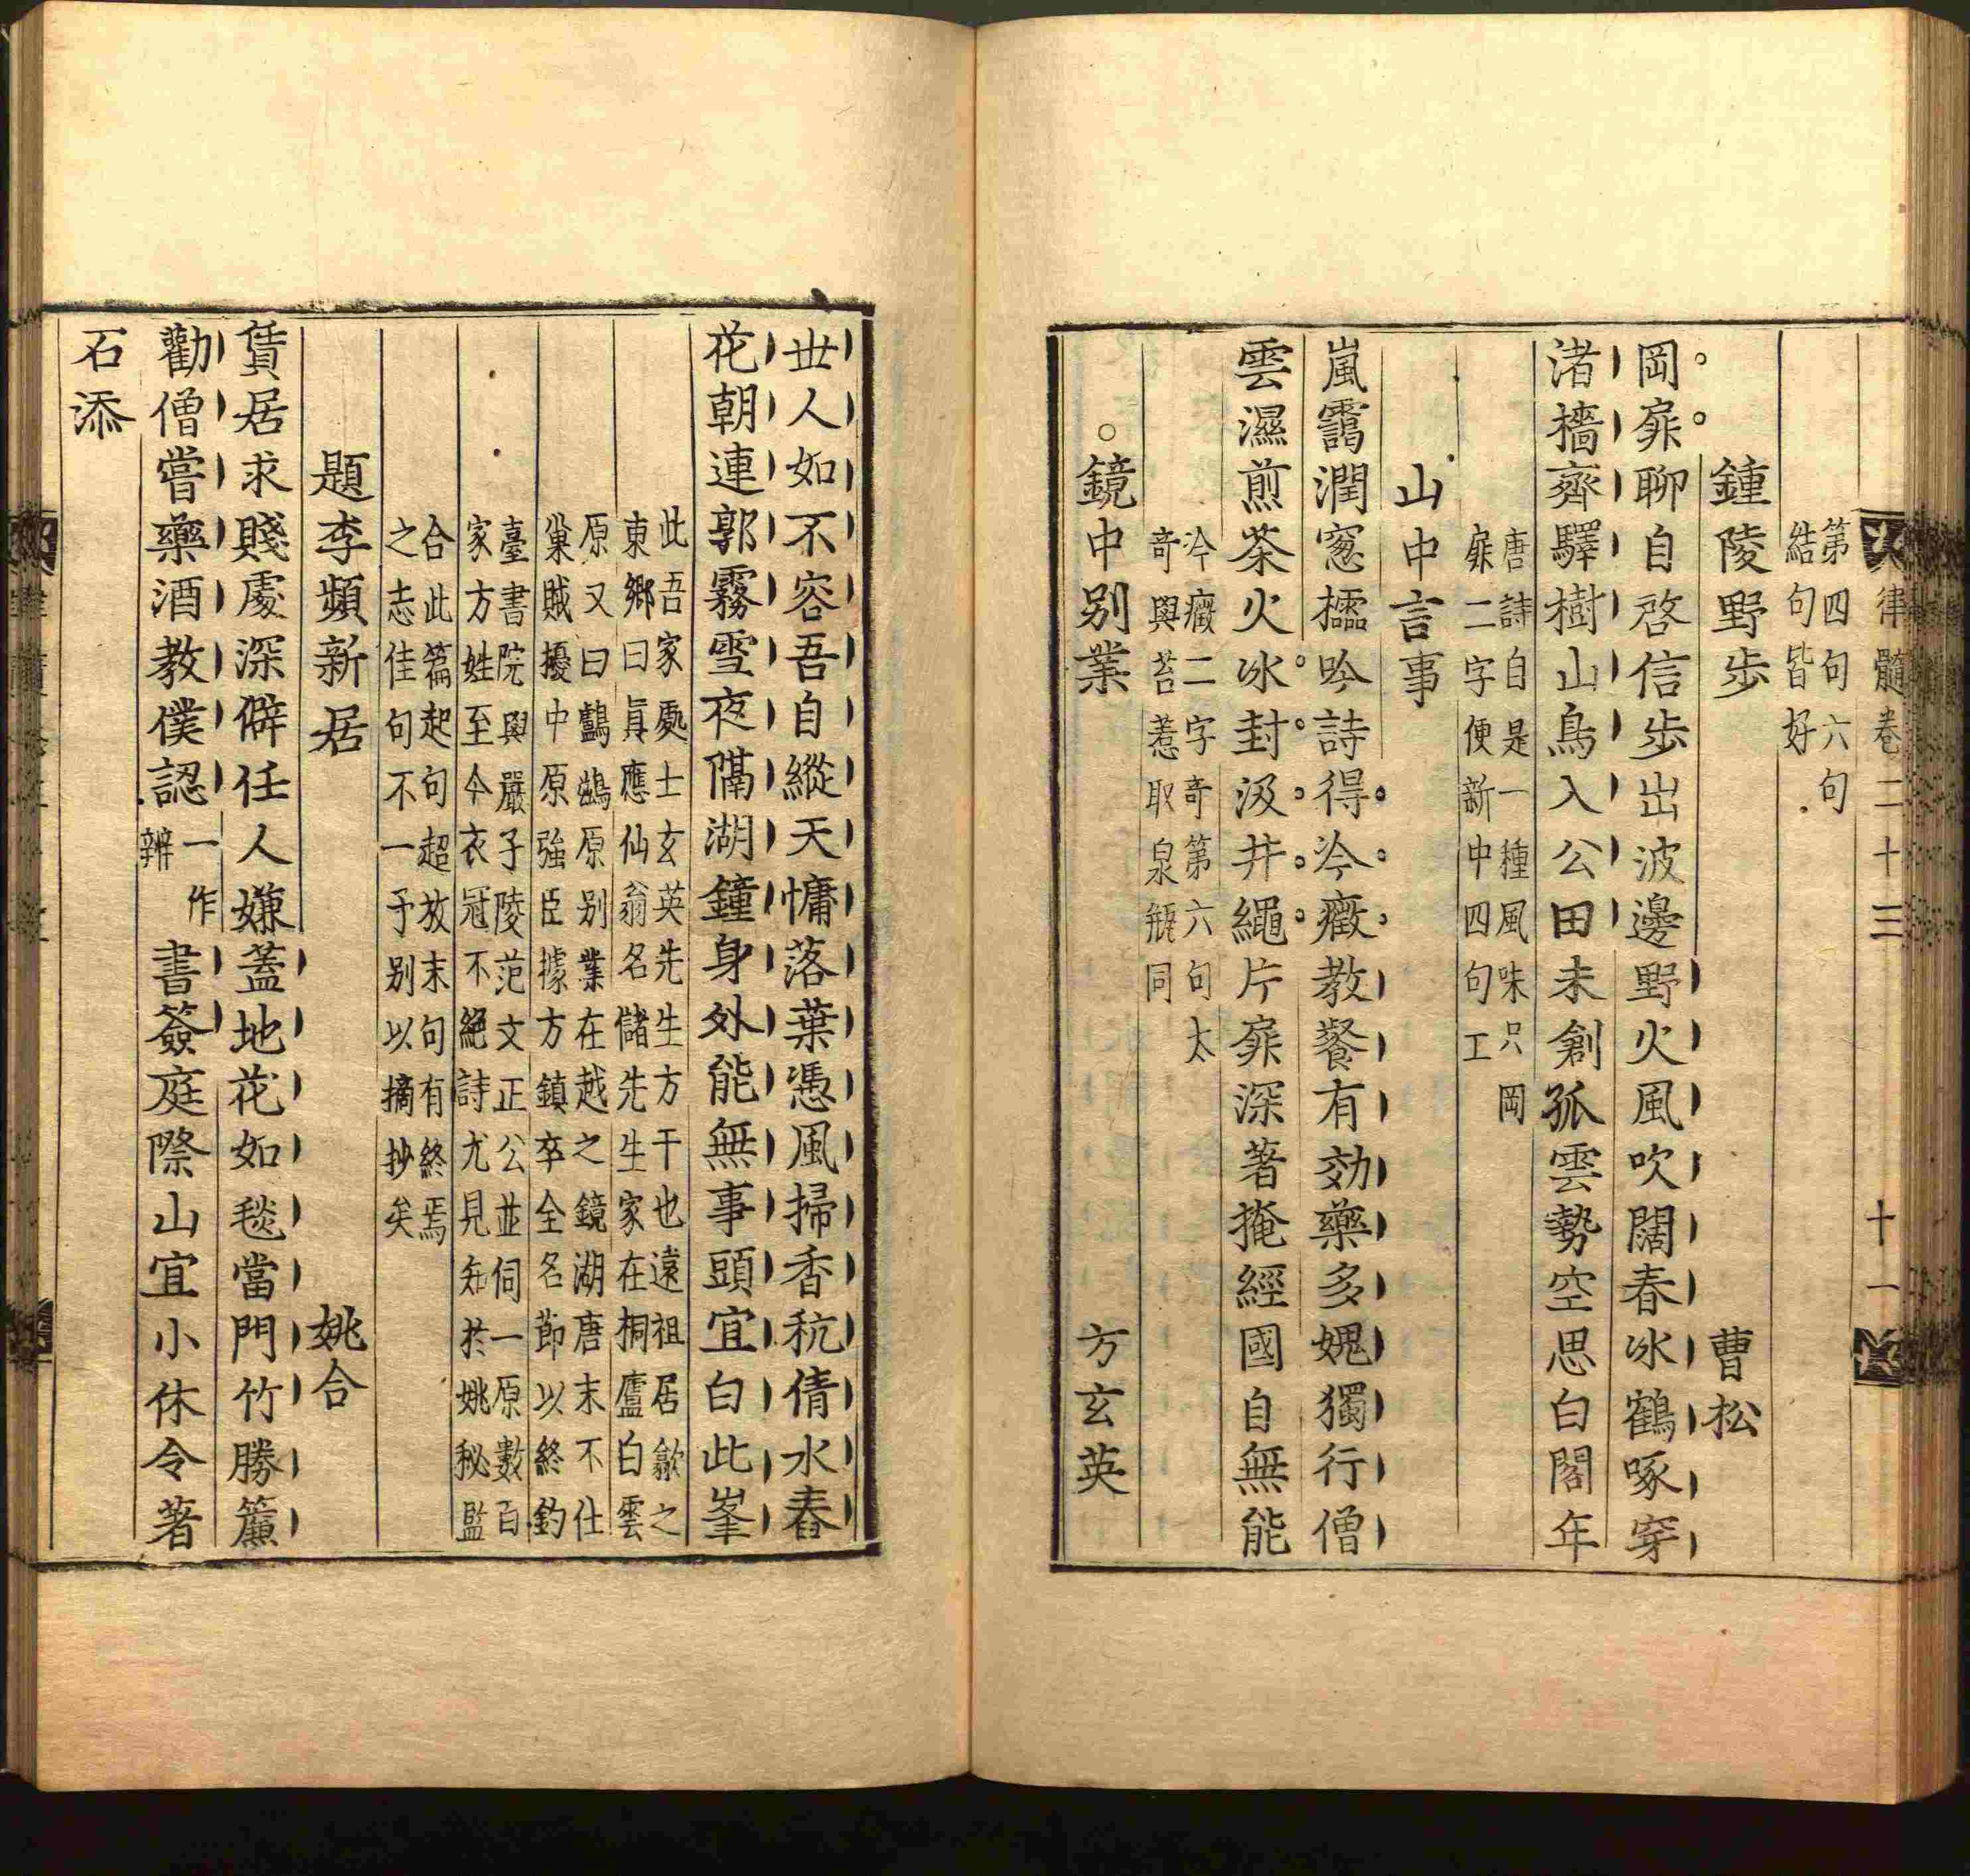 律髓卷二十三 十一
第四句六句
結句皆好
鍾陵野步 曹松
岡扉聊自啓信步出波邊野火風吹闊春冰鶴啄穿
渚檣齊驛樹山鳥入公田未創孤雲勢空思白閣年
唐詩自是一種風味只岡
扉二字便新中四句工
山中言事
嵐靄潤窻櫺吟詩得冷癥教餐有効藥多媿獨行僧
雲濕煎茶火冰封汲井繩片扉深著掩經國自無能
冷癥二字奇第六句太
奇與苔惹取泉缾同
鏡中别業 方玄英
世人如不容吾自縱天慵落葉憑風掃香秔倩水舂
花朝連郭霧雪夜隔湖鐘身外能無事頭宜白此峯
此吾家處士玄英先生方干也遠祖居歙之
東鄉曰真應仙翁名儲先生家在桐廬白雲
原又曰鸕鷀原别業在越之鏡湖唐末不仕
巢賊擾中原強臣據方鎮卒全名節以終釣
臺書院與嚴子陵范文正公並伺一原數百
家方姓至今衣冠不絕詩尤見知於姚秘監
合此篇起句超放末句有終焉
之志佳句不一予别以摘抄矣
題李頻新居 姚合
賃居求賤處深僻任人嫌蓋地花如毯當門竹勝簾
勸僧嘗藥酒教僕認一作辨書簽庭際山宜小休令著
石添